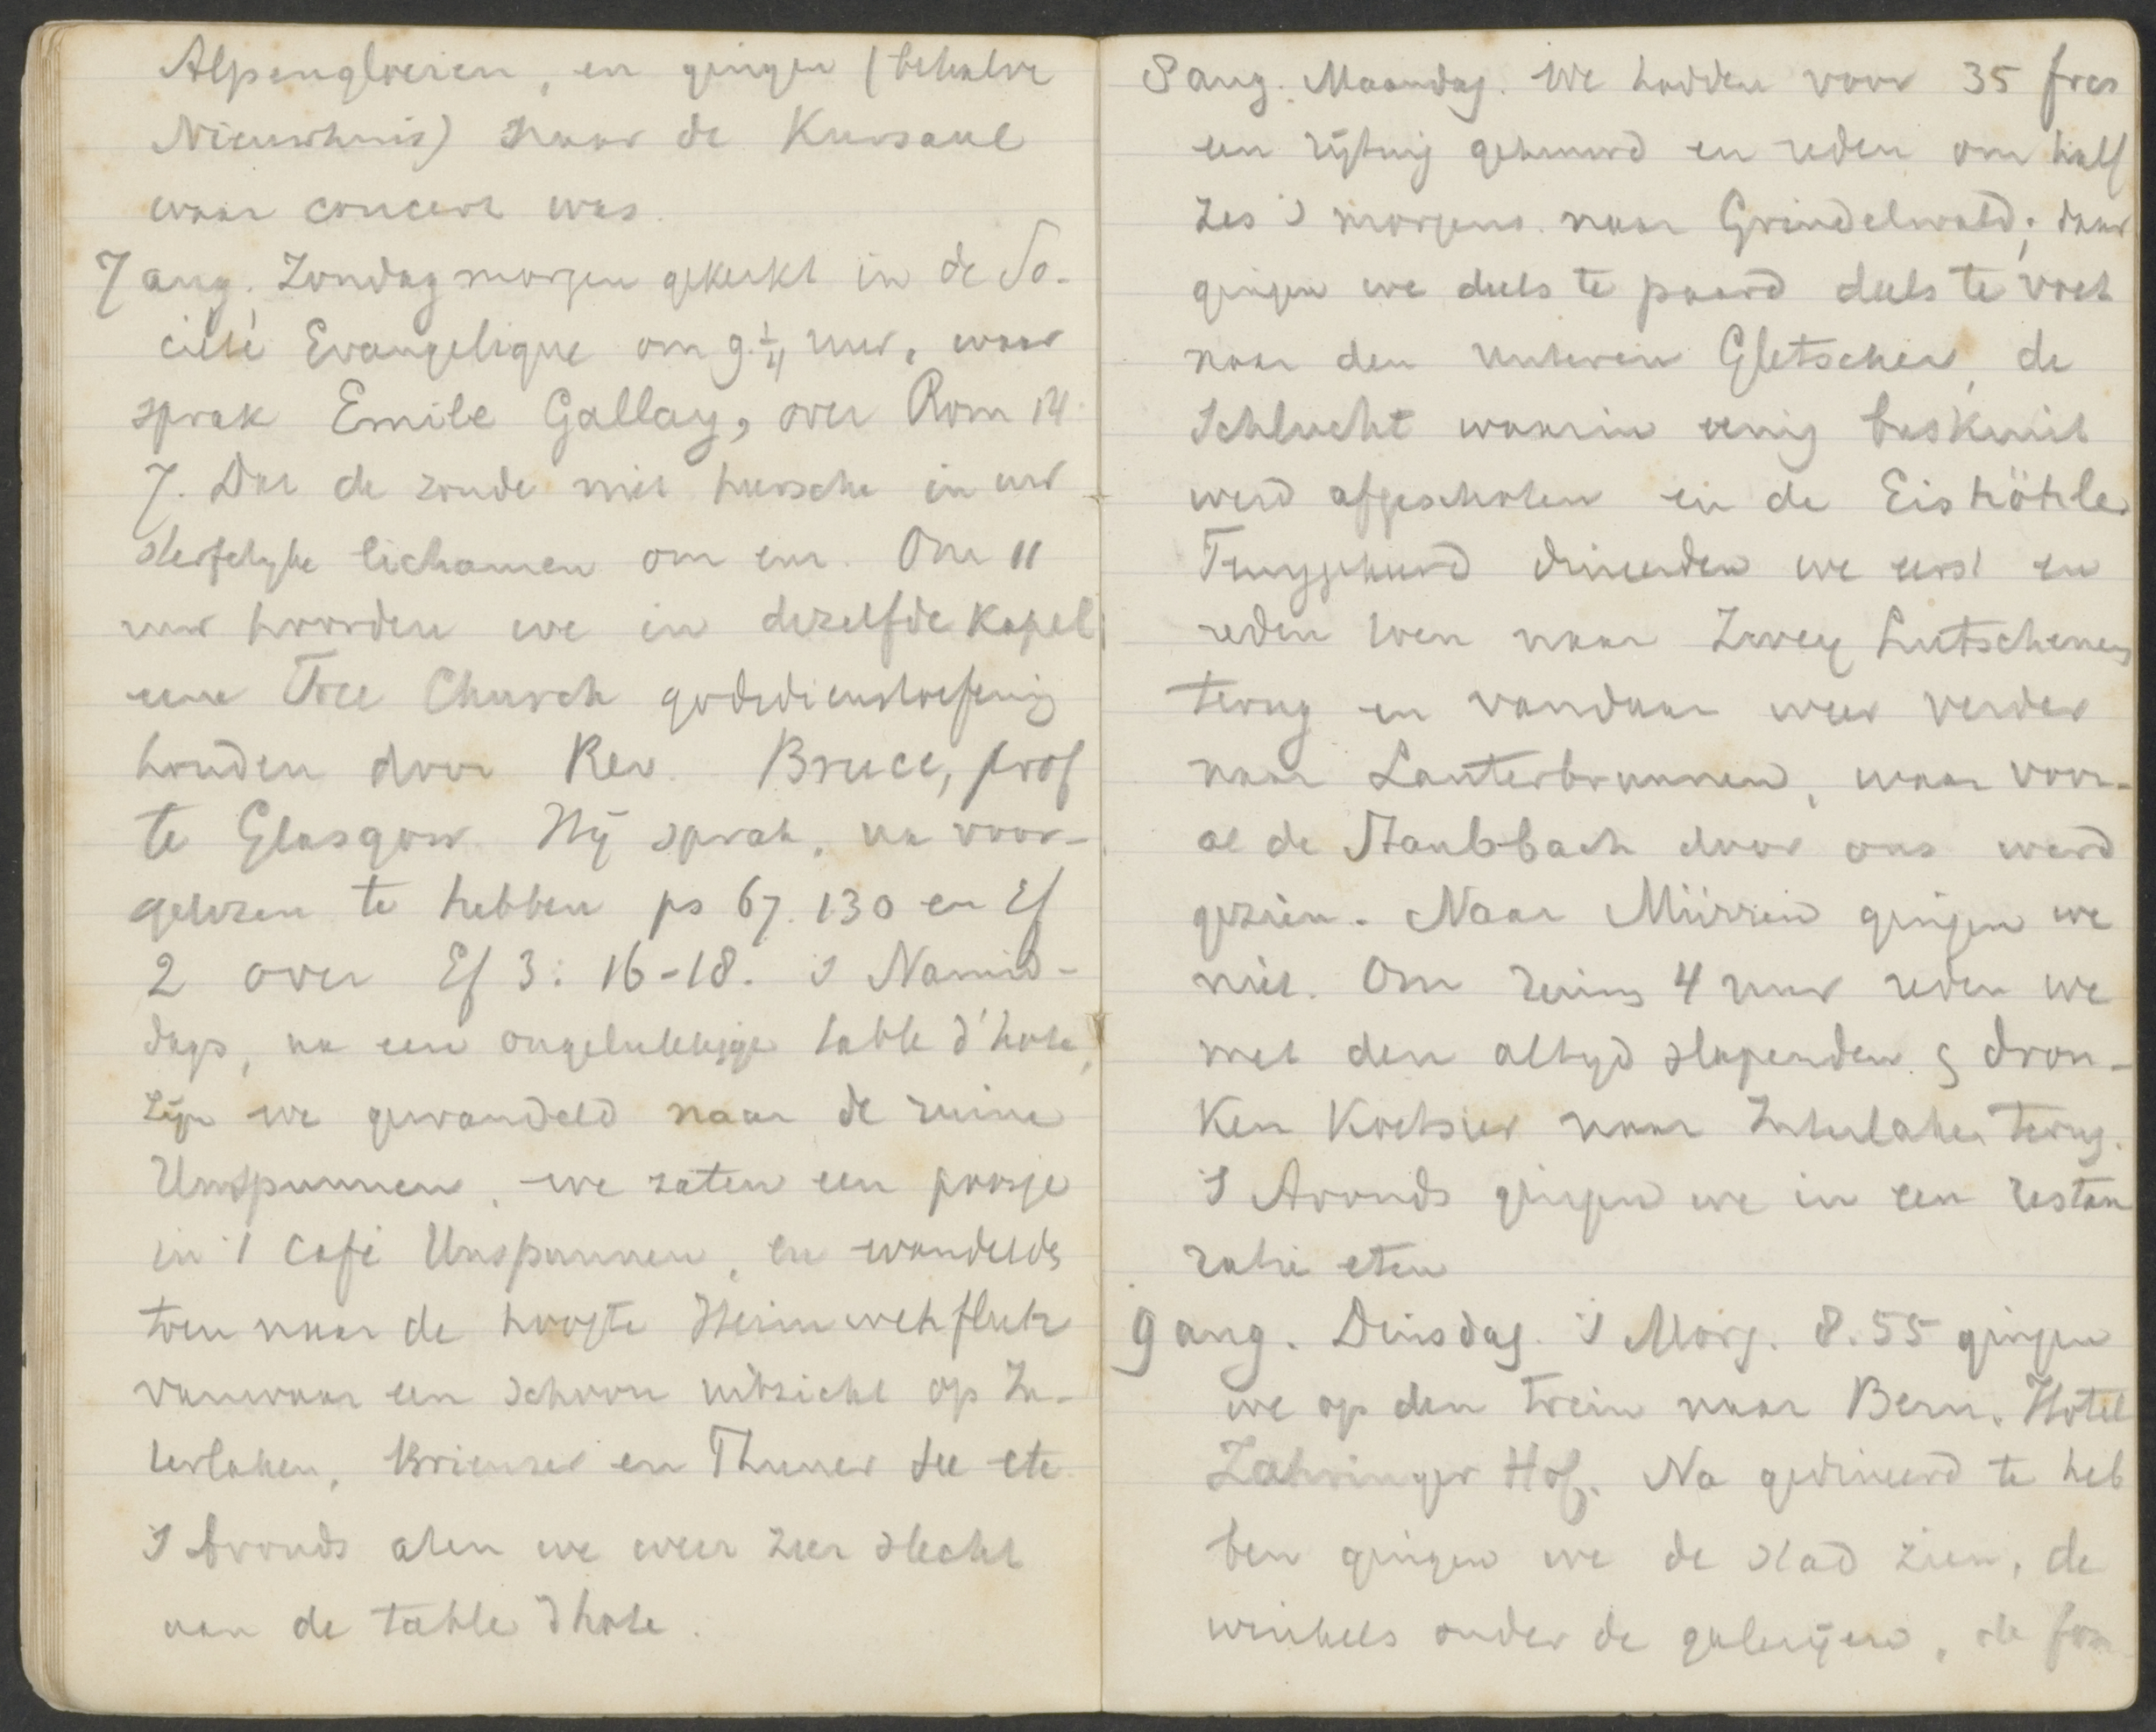 Alpengloeien, en gingen (behalve
Nieuwhuis) naar de Kursaal
waar concert was.
7 aug. Zondag morgen gekerkt in de So-
cieté Evangelique om 9 1/4 uur, waar
sprak Emile Gallay, over Rom 14
7. Dat de zonde niet heersche in uw
sterfelyke lichamen om enz. Om 11
uur hoorden we in dezelfde Kapel
eene Free Church godsdienstoefening
houden door Rev. Bruce, prof
te Glasgow. Hij sprak, na voor-
gelezen te hebben ps 67. 130 en Ef
2 over Ef 3: 16-18. 's Namid-
dags, na een ongelukkige table d'hote,
zijn we gewandeld naar de ruine
Unspunnen, we zaten een poosje
in 't Café Unspunnen, en wandelde
toen naar de hoogte Heimwehfluh
vanwaar een schoon uitzicht op In-
terlaken, Brienzer en Thuner see etc.
's Avonds aten we weer zeer slecht
aan de table d'hote.
8 aug. Maandag. We hadden voor 35 frcs
een rijtuig gehuurd en reden om half
zes 's morgens naar Grindelwald; daar
gingen we deels te paard deels te voet
naar den unteren Gletscher, de
Schlucht waarin eenig buskruit
werd afgeschoten en de Eishöhle.
Teruggekeerd dineerden we eerst en
reden toen naar Zwey Lutschenen
terug en vandaar weer verder
naar Lauterbrunnen, waar voor-
al de Staubbach door ons werd
gezien. Naar Mürren gingen we
niet. Om ruim 4 uur reden we
met den altyd slapenden & dron-
Ken Koetsier naar Interlaken terug.
's Avonds gingen we in een restau
ratie eten
9 aug. Dinsdag. 's Morg. 8.55 gingen
we op den trein naar Bern. Hotel
Zahringer Hof. Na gedineerd te heb
ben gingen we de stad zien, de
winkels onder de galerijen, de fon